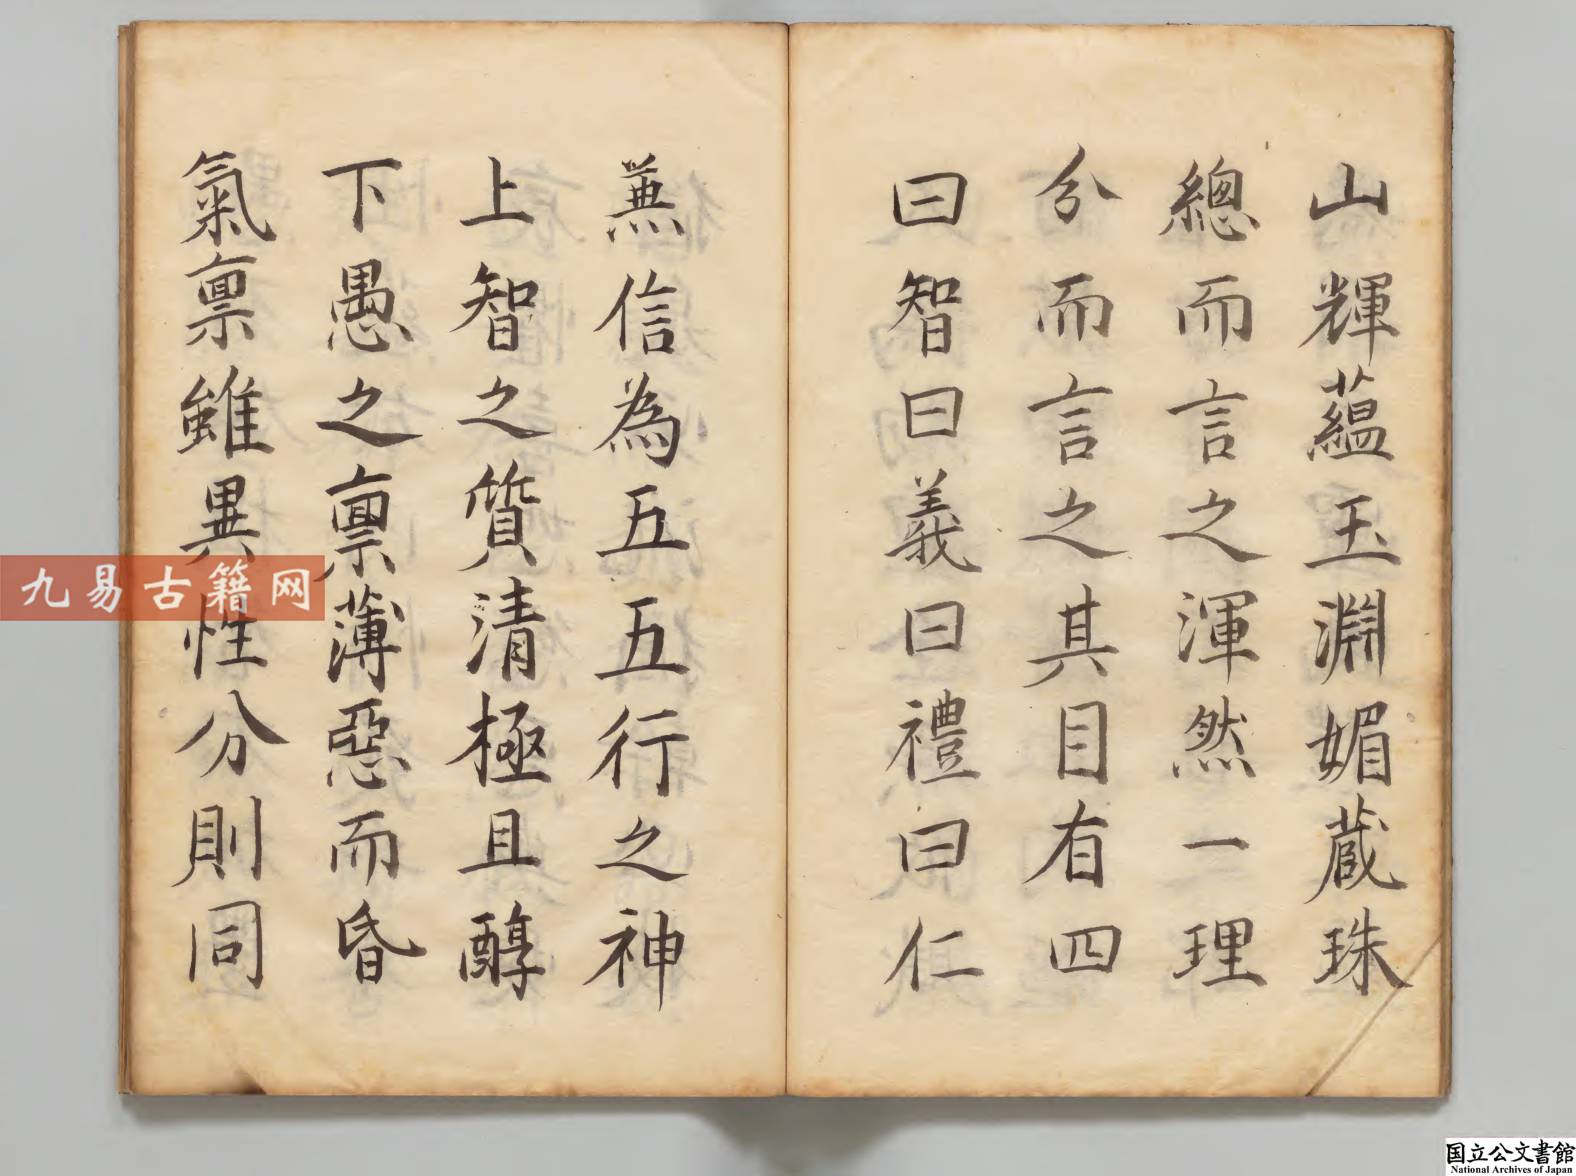 山輝蘊玉淵媚蔵珠
總而言之渾然一理
分而言之其目有四
曰智曰義曰禮曰仁
蕪信為五五行之神
上智之質清極且醇
下愚之禀薄惡而昏
氣禀雖異性分則同
九易古籍网
国立公文書館
National Archives of Japan